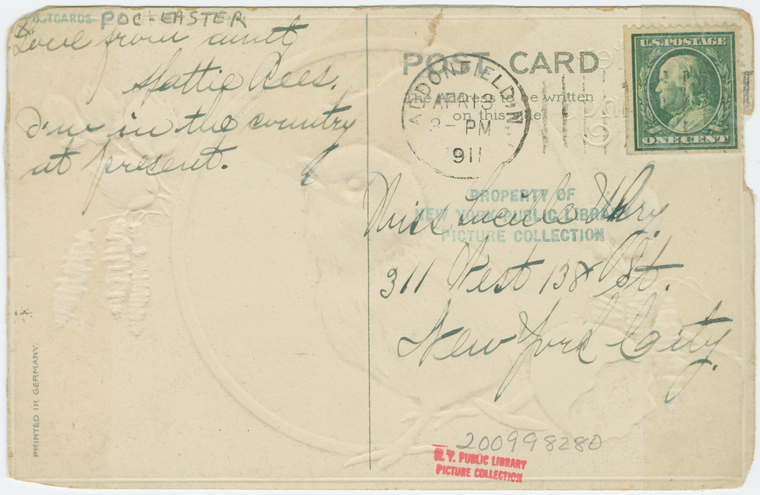 POSTCARDS
POC-EASTER
Love from aunty
Hattie Rees.
I'm in the country
at present.
POST CARD
The Address to be written
on this side
HADDONFIELD, N.J.
APR 13
3-PM
1911
U.S. POSTAGE
ONE CENT
PROPERTY OF
NEW YORK PUBLIC LIBRARY
PICTURE COLLECTION
Miss Lucille
311 West 138 St.
New York City.
PRINTED IN GERMANY.
200998280
N. Y. PUBLIC LIBRARY
PICTURE COLLECTION